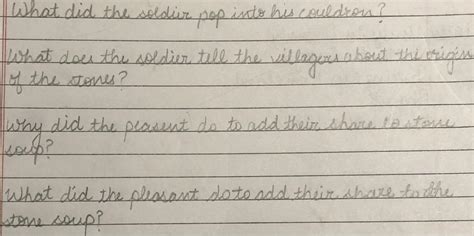 What did the soldier pop into his couldron?
What does the soldier tell the villagers about the origin
of the stones?
Why did the peasent do to add their share to stone
soup?
What did the pleasant do to add their share to the
stone soup?